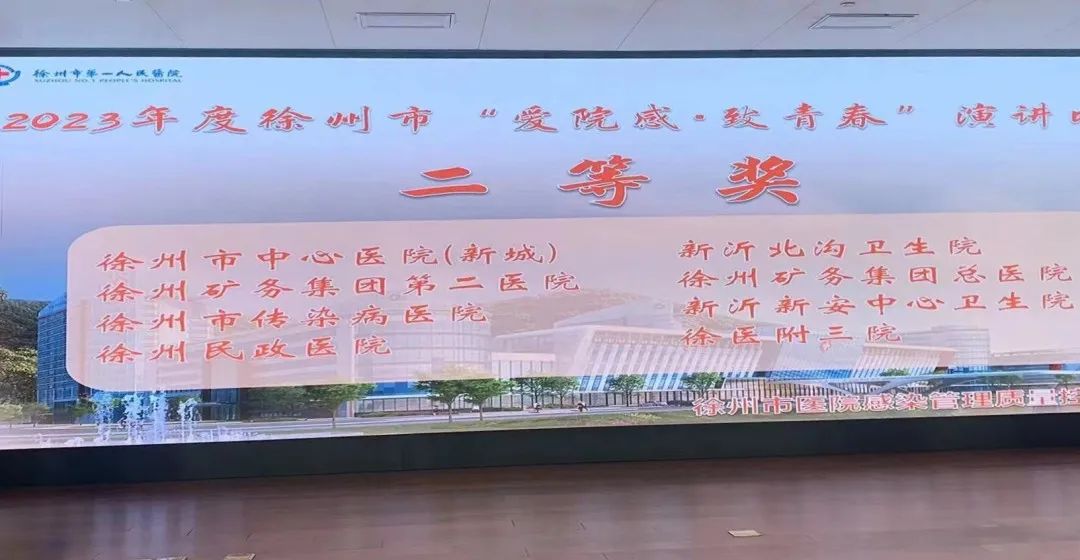 徐州市第一人民醫院
XUZHOU NO.1 PEOPLE'S HOSPITAL
2023年度徐州市“爱院感·致青春”演讲
二等奖
徐州市中心医院(新城)
徐州矿务集团第二医院
徐州市传染病医院
徐州民政医院
新沂北沟卫生院
徐州矿务集团总医院
新沂新安中心卫生院
徐医附三院
徐州市医院感染管理质量控